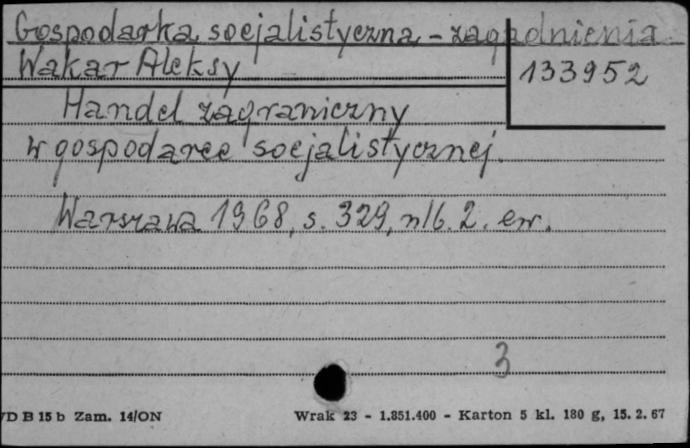 Gospodarka socjalistyczna - zagadnienia
Wakar Aleksy
133952
Handel zagraniczny
w gospodarce socjalistycznej.
Warszawa 1968, s. 329, nlb. 2. err.
3
VD B 15 b Zam. 14/ON
Wrak 23 - 1.851.400 - Karton 5 kl. 180 g, 15. 2. 67